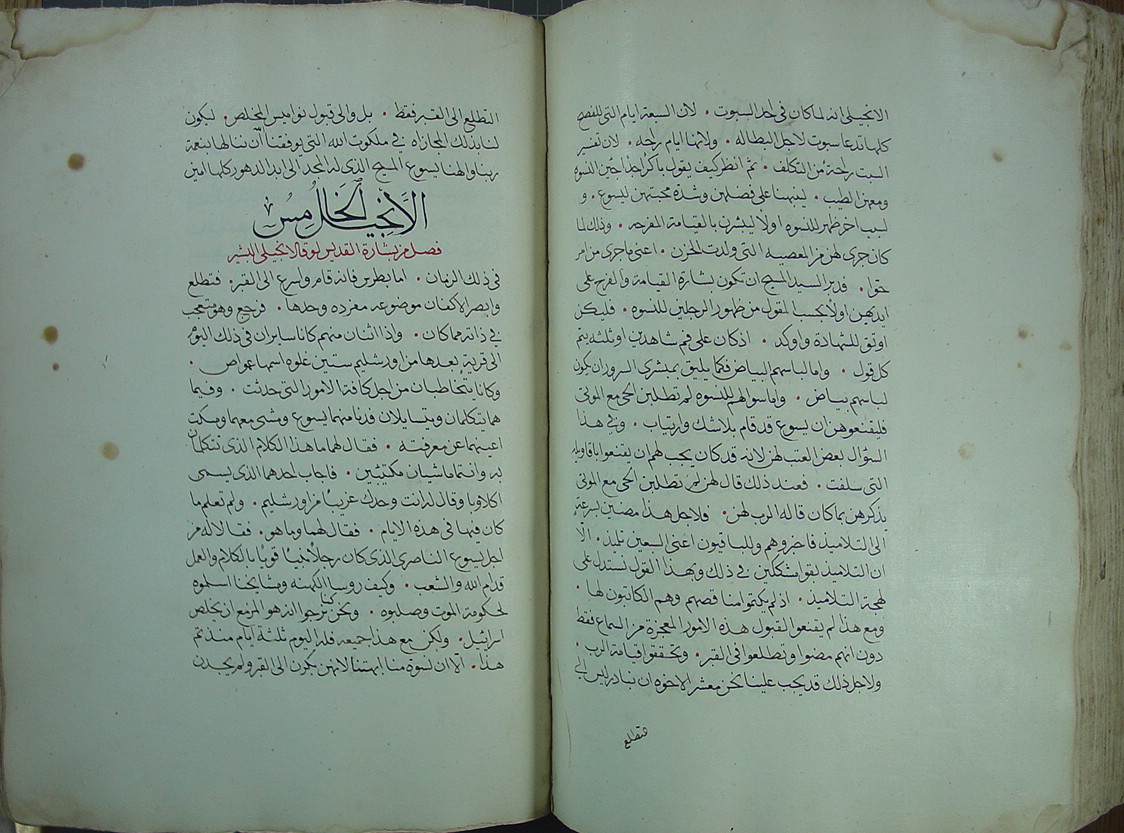 الانجيلي انه لما كان في احد السبوت. لان السبعة ايام التي للفصح
كلها تدعا سبوت لاجل البطاله. ولانها ايام راحه. لان تفسير
السبت راحة من التكلف. ثم انظر كيف يقول باكرًا جدًا جين النسوه
ومعهن الطيب. لينبهنا على فضلهن وشدة محبتهن ليسوع. و
لسبب اخر ظهر للنسوه اولًا ليبشرن بالقيامة المفرحه. وذلك لما
كان جرى لهن من المعصية التي ولدت الحزن. اعني ما جرى من امر
حوا. فدبر السيد المسيح ان تكون بشارة القيامة والفرح على
ايديهن اولًا بحسب المقول من ظهور الرجلين للنسوه. فليكن
اوثق للشهادة واوكد. اذ كان على فم شاهدين او ثلثه يتم
كل قول. واما لباسهم البياض فكما يليق بمبشرى السرور ان يكون
لباسهم بياض. واما سوالهم للنسوه لم تطلبن الحي مع الموتى
فليقنعوهن ان يسوع قد قام بلا شك وارتياب. وفي هذا
السؤال بعض العتب لهن لانه قد كان يجب لهم ان يقتنعوا باقاويله
التي سلفت. فعند ذلك قال لهن لم تطلبن الحي مع الموتى
يذكرهن بما كان قاله الرب لهن. فلاجل هذا مضين بسرعة
الى التلاميذ فاخبروهم وللباقيون اعنى السبعين تلميذ. الّا
ان التلاميذ بقوا مشككين في ذلك وبهذا القول نستدل على
لهجة التلاميذ. اذ لم يكتموا منا نقصهم وهم الكاتبون لها.
ومع هذا لم يقنعوا القبول هذه الامور المعجزة من السماع فقط
دون انهم مضوا وتطلعوا في القبر. وتحققوا قيامة الرب.
ولاجل ذلك قد يجب علينا نحن معشر الاخوه ان نبادر ليس الى
متطلع
التطلع الى القبر فقط. بل والى قبول نواميس المخلص. ليكون
لنا بذلك المجازاه في ملكوت الله التي يوفقنا ان ننالها بنعمة
ربنا والهنا يسوع المسيح الذي له المجد الى ابد الدهور كلها امين
الانجيل الخامس
فصل من بشارة القديس لوقا الانجيلي البشير
في ذلك الزمان. اما بطرس فانه قام واسرع الى القبر. فتطلع
وابصر الاكفان موضوعه مفرده وحدها. فرجع وهو متعجب
في ذاته مما كان. واذا اثنان منهم كانا سايران في ذلك اليوم
الى قرية بعدها من اورشليم ستين غلوه اسمها عمواص.
وكانا يتخاطبان من اجل كافة الامور التي حدثت. وفيما
هما يتكلمان ويتسايلان فدنا منهما يسوع ومشى معهما ومسكت
اعينهما عن معرفته. فقال لهما ما هذا الكلام الذي تتكلمان
به وانتما ماشيان مكتيبين. فاجاب احدهما الذي يسمى
اكلاوبا وقال له انت وحدك غريبًا من اورشليم. ولم تعلم ما
كان فيها في هذه الايام. فقال لهما وما هو. فقالا له من
اجل يسوع الناصرى الذي كان رجلًا نبيًا قويًا بالكلام والعمل
قدام الله والشعب. وكيف روسا الكهنه ومشايخنا اسلموه
لحكومة الموت وصلبوه. ونحن كنا نرجوا انه هو المزمع ان يخلص
اسرائيل. ولكن مع هذا جميعه فله اليوم ثلثة ايام منذ تم
هذا. الّا ان نسوة منا ابهتتنا لانهن بكرن الى القبر ولم يجدن